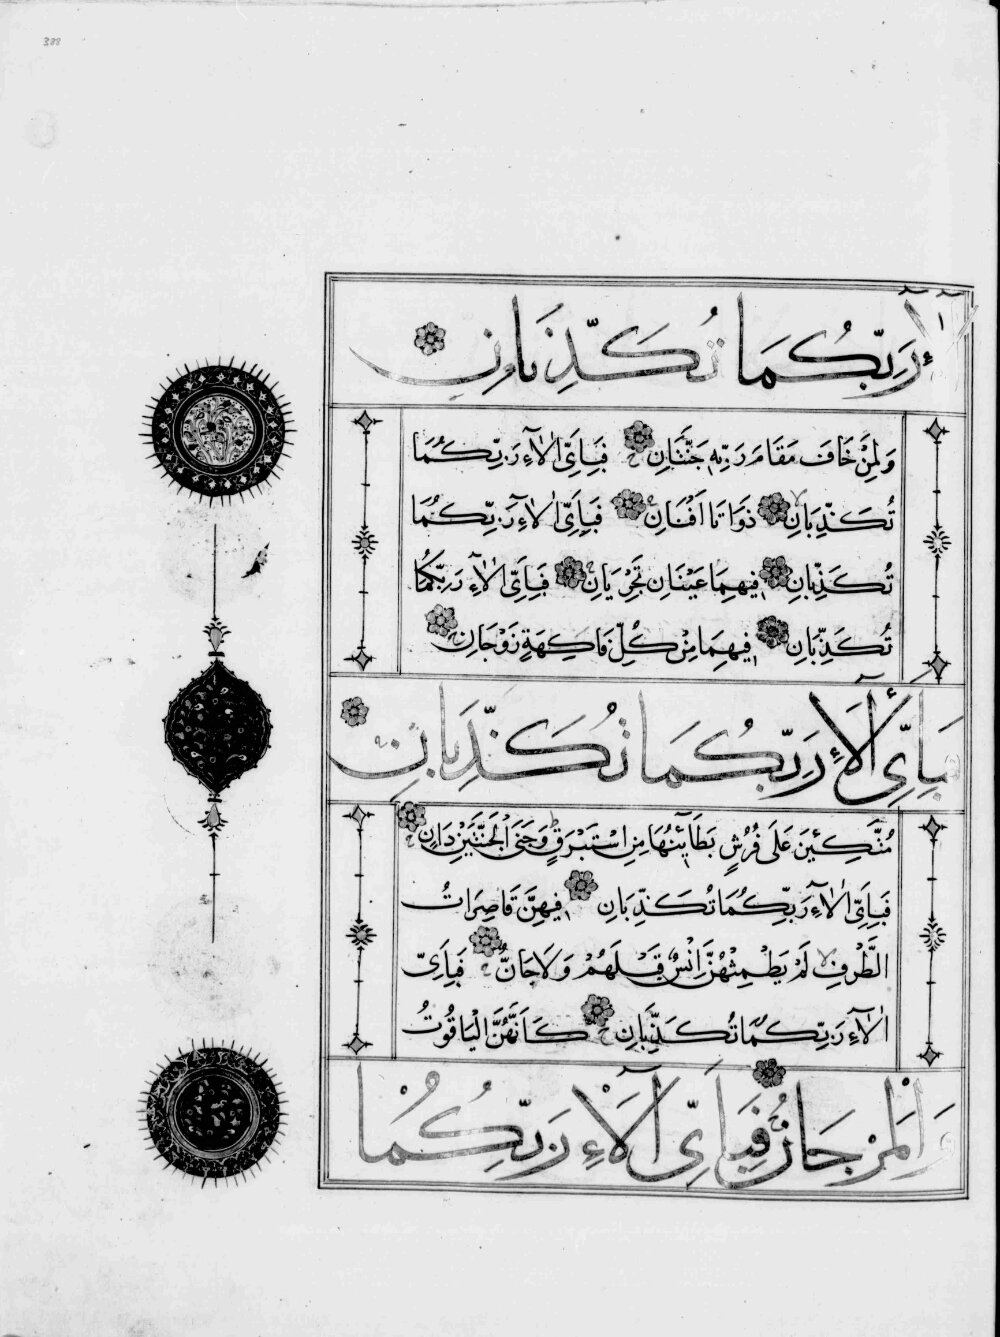 388
آلَآءِ رَبِّكُمَا تُكَذِّبَانِ
وَلِمَنْ خَافَ مَقَامَ رَبِّهِ جَنَّتَانِ فَبِأَيِّ اٰلَآءِ رَبِّكُمَا
تُكَذِّبَانِ ذَوَاتَا اَفْنَانٍ فَبِأَيِّ اٰلَآءِ رَبِّكُمَا
تُكَذِّبَانِ فِيهِمَا عَيْنَانِ تَجْرِيَانِ فَبِأَيِّ اٰلَآءِ رَبِّكُمَا
تُكَذِّبَانِ فِيهِمَا مِنْ كُلِّ فَاكِهَةٍ زَوْجَانِ
فَبِأَيِّ آلَآءِ رَبِّكُمَا تُكَذِّبَانِ
مُتَّكِئِينَ عَلَى فُرُشٍ بَطَآئِنُهَا مِنْ اِسْتَبْرَقٍ وَجَنَى الْجَنَّتَيْنِ دَانٍ
فَبِأَيِّ اٰلَآءِ رَبِّكُمَا تُكَذِّبَانِ فِيهِنَّ قَاصِرَاتُ
الطَّرْفِ لَمْ يَطْمِثْهُنَّ اِنْسٌ قَبْلَهُمْ وَلَا جَانٌّ فَبِأَيِّ
اٰلَآءِ رَبِّكُمَا تُكَذِّبَانِ كَاَنَّهُنَّ الْيَاقُوتُ
وَالْمَرْجَانُ فَبِأَيِّ آلَآءِ رَبِّكُمَا